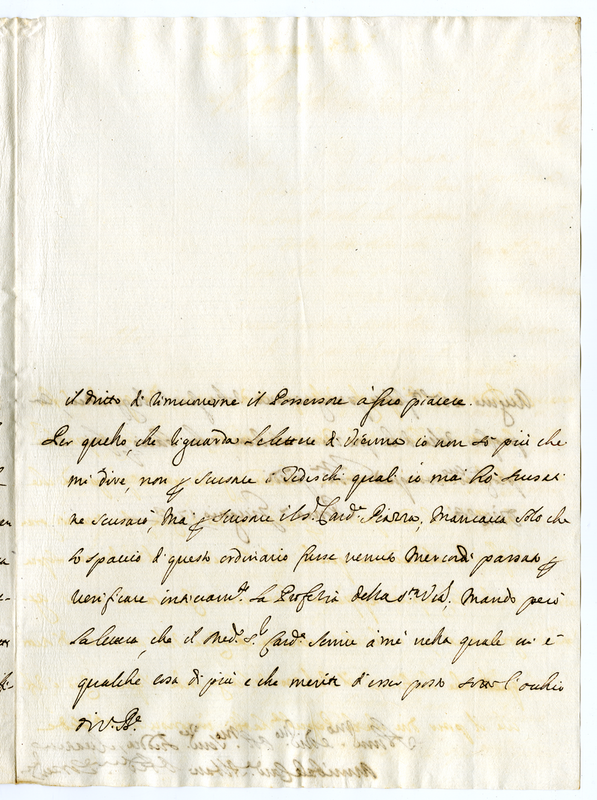 il diritto di rimuoverne il Possessore à suo piacere.
Per quello, che riguarda le lettere di Vienna io non sò più che
mi dire, non scusare i Tedeschi quali io mai hò scusati
ne scusarò, Ma scusare il Sr. Card. Piazza, Mancava solo che
lo spaccio di questo ordinario fusse venuto Mercordì passato
verificare la Profezia della Stà Vrã, Mando però
la lettera, che il med.º Sr. Card.e scrive à mè nella quale vi è
qualche cosa di più e che merita d'esser posta sotto l'occhio
di V. Be.